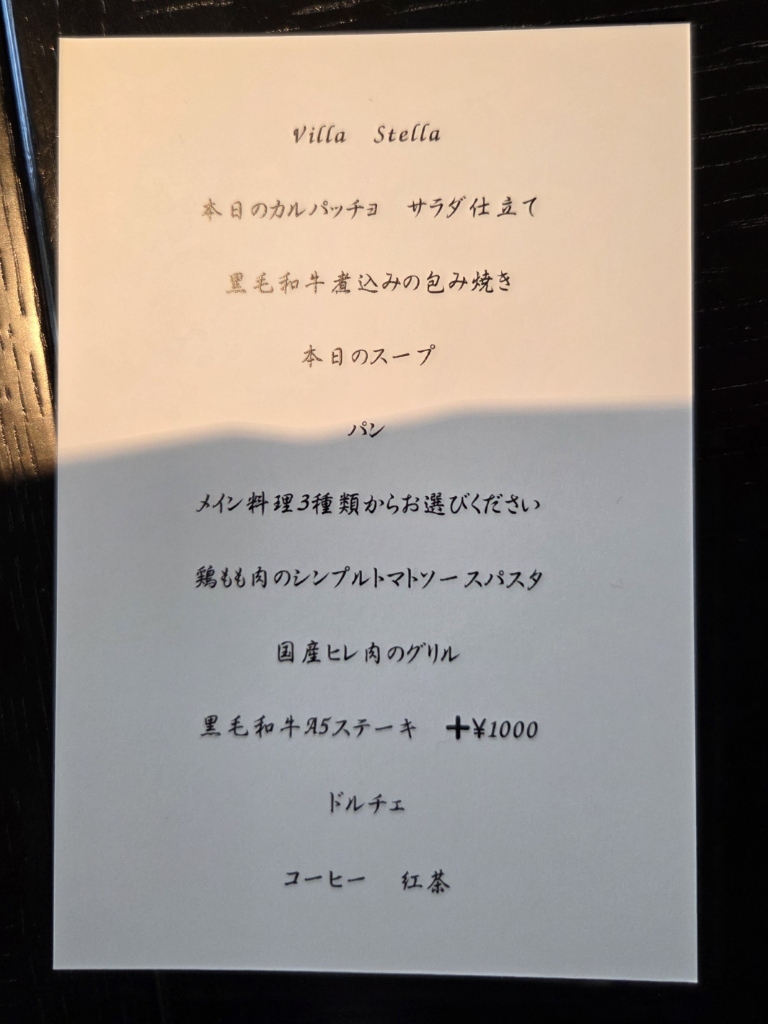 Villa Stella
本日のカルパッチョ サラダ仕立て
黒毛和牛煮込みの包み焼き
本日のスープ
パン
メイン料理3種類からお選びください
鶏もも肉のシンプルトマトソースパスタ
国産ヒレ肉のグリル
黒毛和牛A5ステーキ ➕¥1000
ドルチェ
コーヒー 紅茶